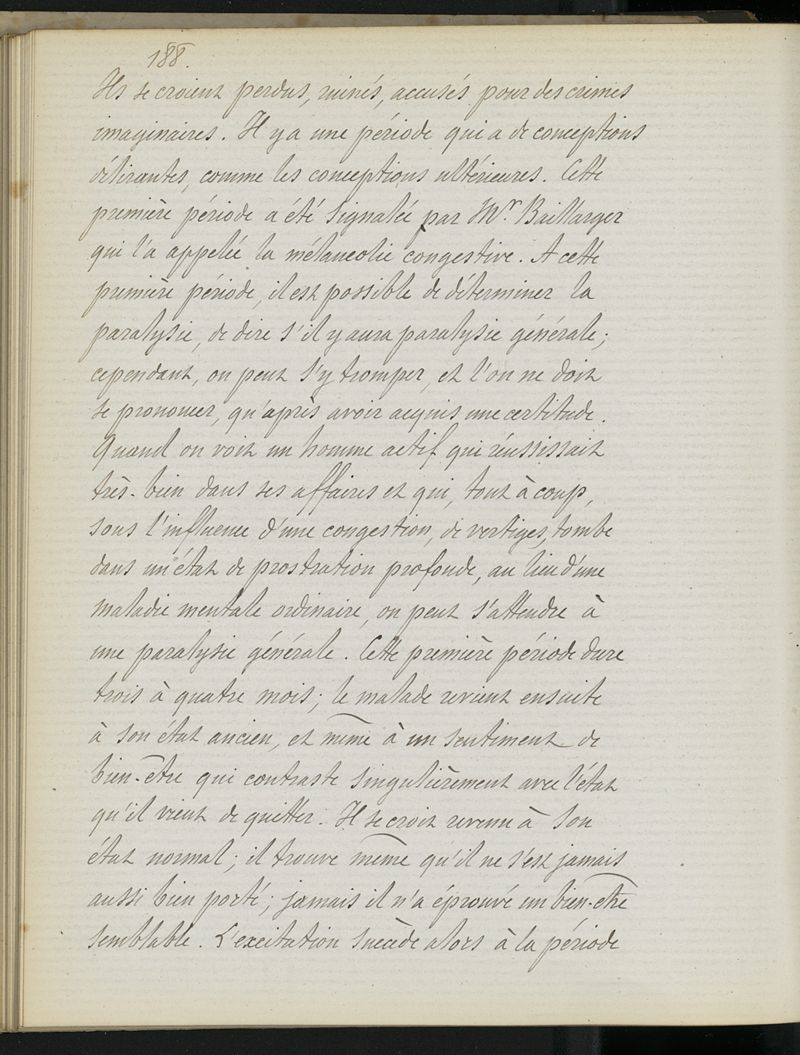 188.
Ils se croient perdus, ruinés, accusés pour des crimes
imaginaires. Il y a une période qui a de conceptions
délirantes, comme les conceptions ultérieures. Cette
première période a été signalée par Mr Baillarger
qui l'a appelée la mélancolie congestive. A cette
première période, il est possible de déterminer la
paralysie, de dire s'il y aura paralysie générale;
cependant, on peut s'y tromper, et l'on ne doit
se prononcer, qu'après avoir acquis une certitude.
Quand on voit un homme actif qui réussissait
très-bien dans ses affaires et qui, tout à coup,
sous l'influence d'une congestion, de vertiges, tombe
dans un état de prostration profonde, au lieu d'une
maladie mentale ordinaire, on peut s'attendre à
une paralysie générale. Cette première période dure
trois à quatre mois; le malade revient ensuite
à son état ancien, et même à un sentiment de
bien-être qui contraste singulièrement avec l'état
qu'il vient de quitter. Il se croit revenu à son
état normal; il trouve même qu'il ne s'est jamais
aussi bien porté; jamais il n'a éprouvé un bien-être
semblable. L'excitation succède alors à la période